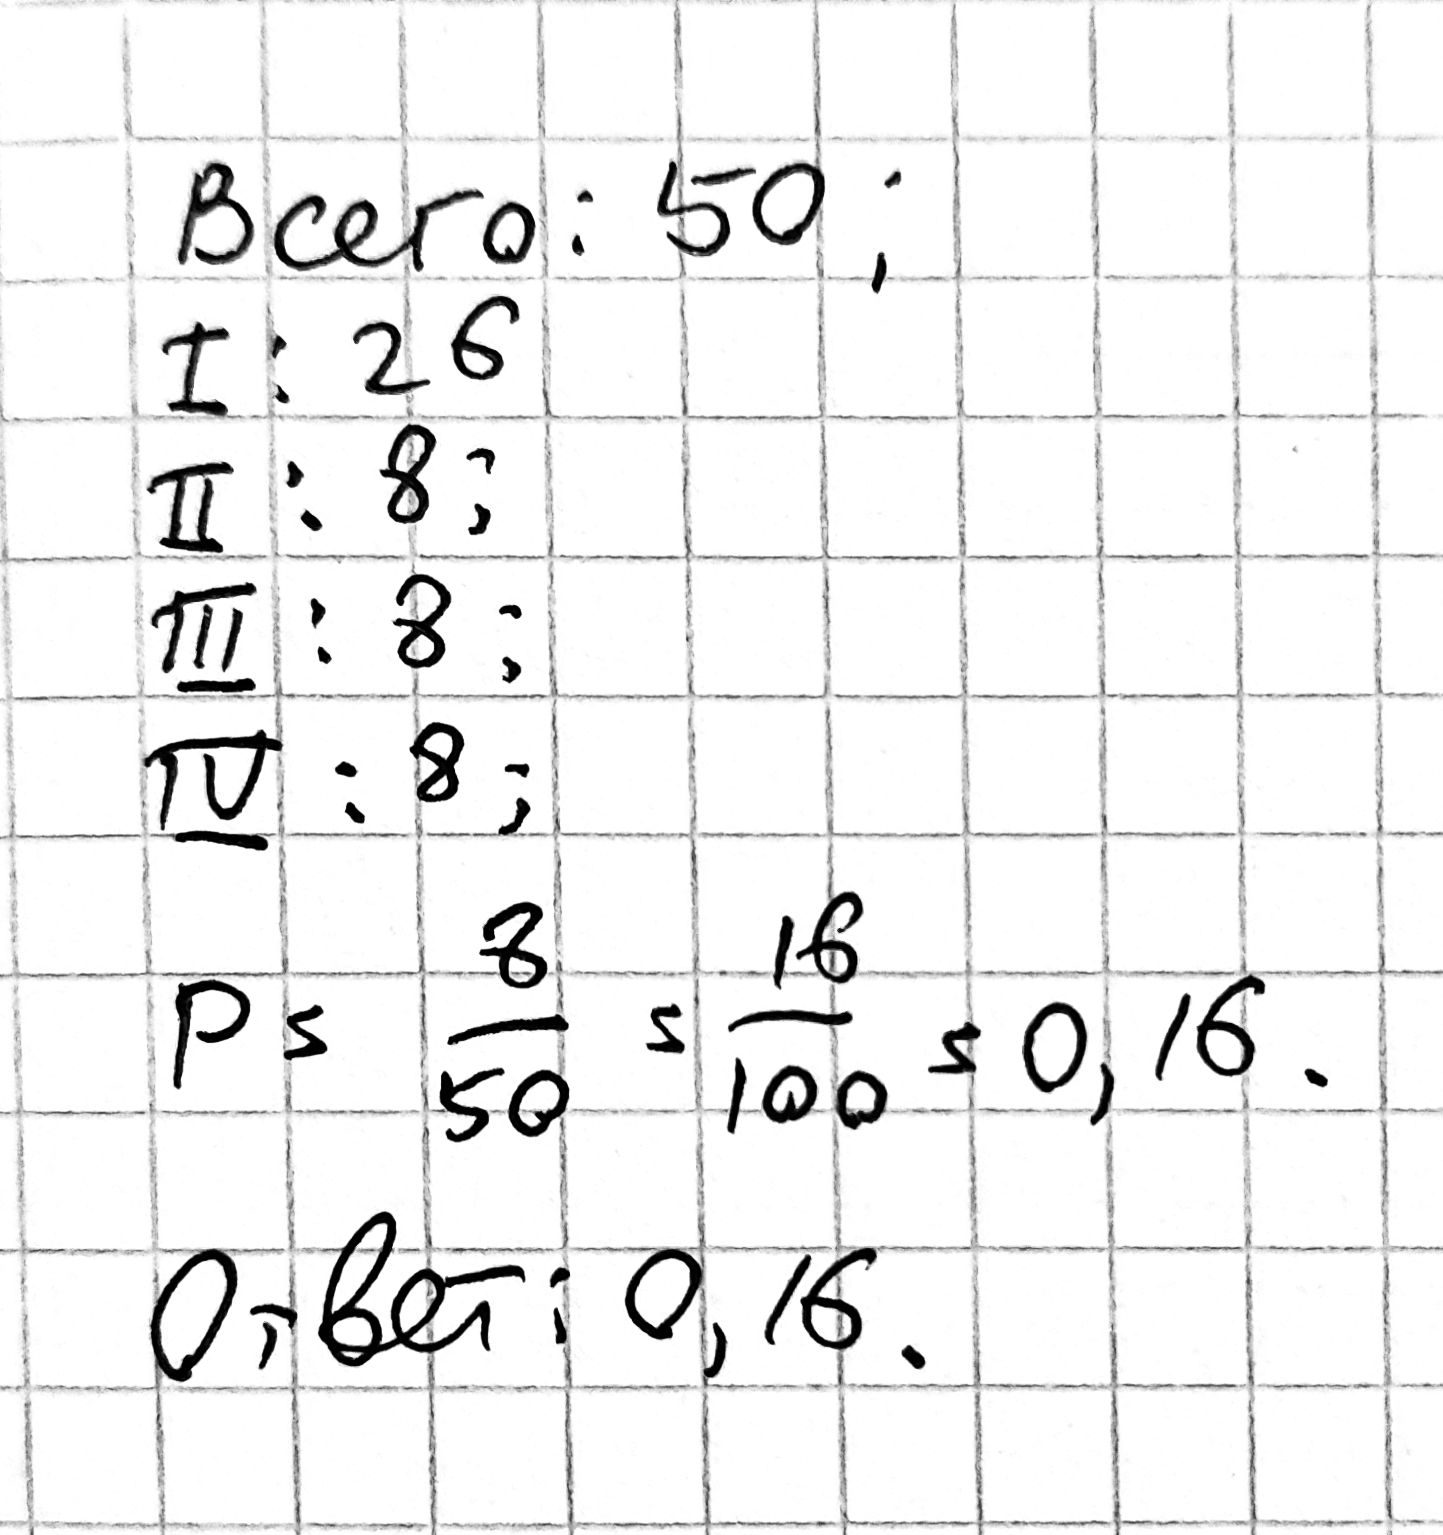 Всего: 50;
I: 26
II: 8;
III: 8;
IV: 8;
P = 8/50 = 16/100 = 0,16.
Ответ: 0,16.